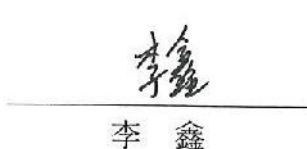 李鑫
李 鑫